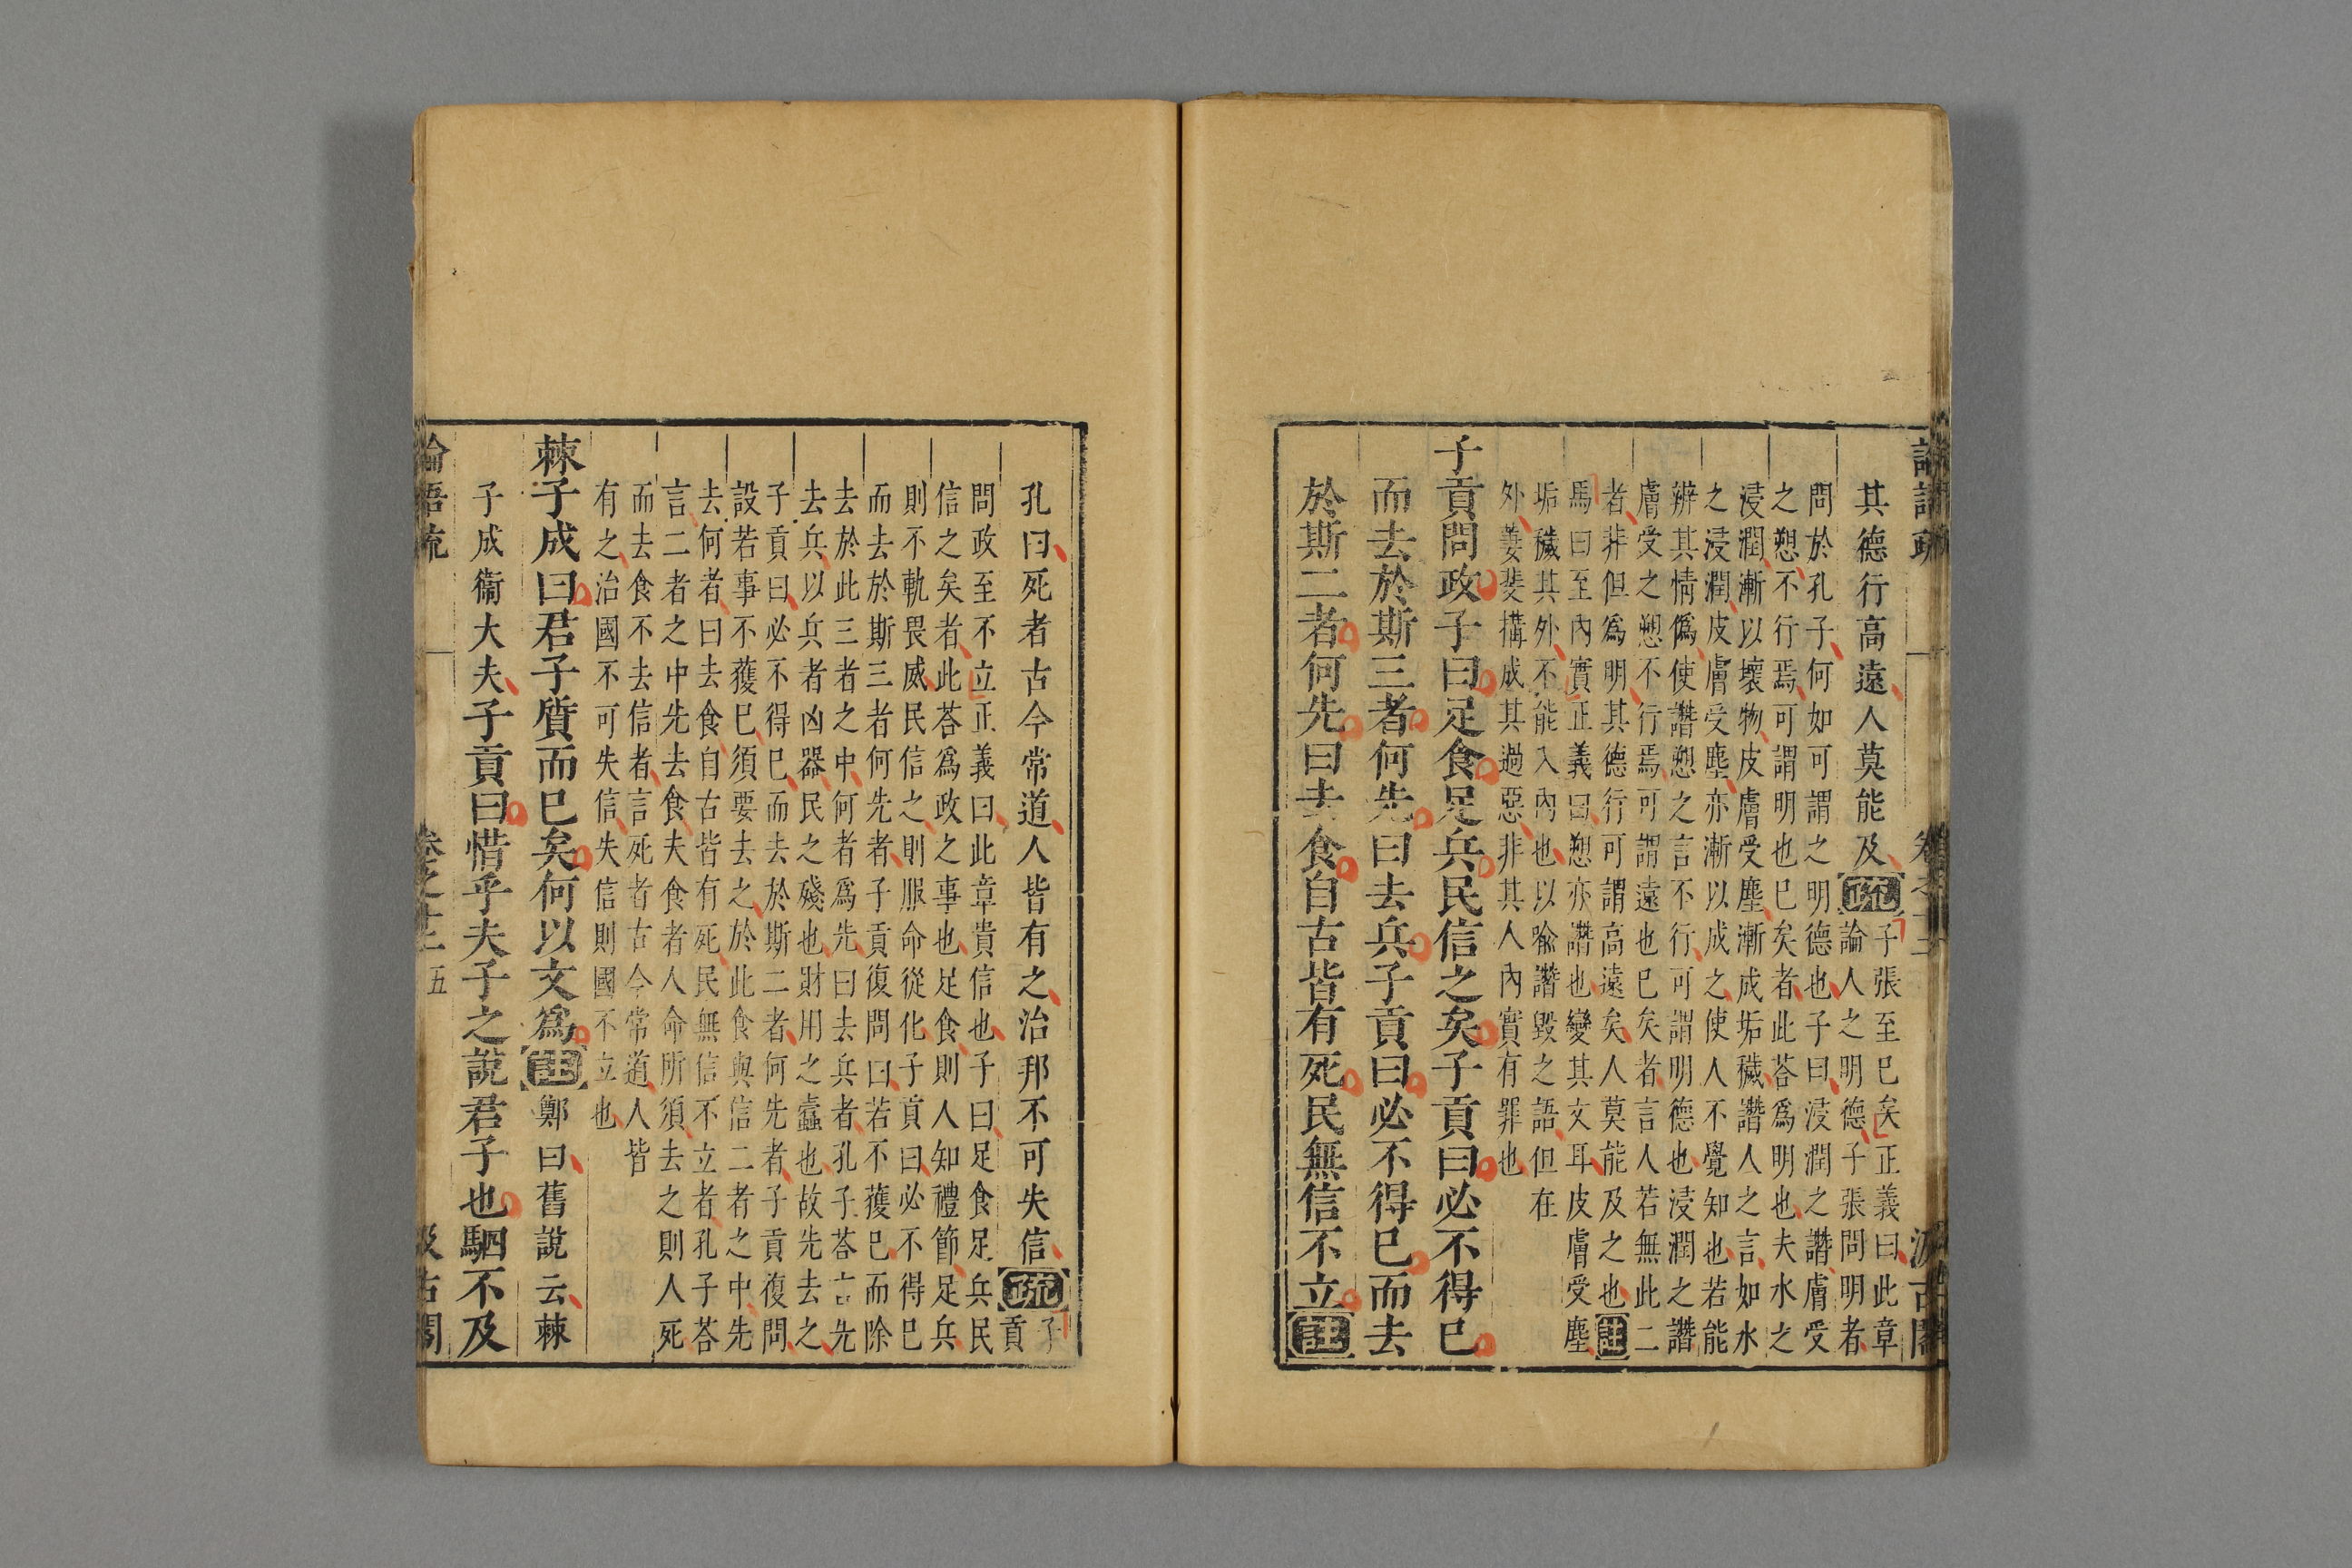 其德行高遠人莫能及疏子張至已矣正義曰此章
論人之明德子張問明者
問於孔子何如可謂之明德也子曰浸潤之譖膚受
之愬不行焉可謂明也已矣者此荅爲明也夫水之
浸潤漸以壞物皮膚受塵漸成垢穢譖人之言如水
之浸潤皮膚受塵亦漸以成之使人不覺知也若能
辨其情僞使譖愬之言不行可謂明德也浸潤之譖
膚受之愬不行焉可謂遠也已矣者言人若無此二
者非但爲明其德行可謂高遠矣人莫能及之也註
馬曰至內實正義曰愬亦譖也變其文耳皮膚受塵
垢穢其外不能入內也以喩譖毀之語但在
外萋斐構成其過惡非其人內實有罪也
子貢問政子曰足食足兵民信之矣子貢曰必不得已
而去於斯三者何先曰去兵子貢曰必不得已而去
於斯二者何先曰去食自古皆有死民無信不立註
孔曰死者古今常道人皆有之治邦不可失信疏子
貢
問政至不立正義曰此章貴信也子曰足食足兵民
信之矣者此荅爲政之事也足食則人知禮節足兵
則不軌畏威民信之則服命從化子貢曰必不得已
而去於斯三者何先者子貢復問曰若不獲已而除
去於此三者之中何者爲先曰去兵者孔子荅言先
去兵以兵者凶器民之殘也財用之蠹也故先去之
子貢曰必不得已而去於斯二者何先者子貢復問
設若事不獲已須要去之於此食與信二者之中先
去何者曰去食自古皆有死民無信不立者孔子荅
言二者之中先去食夫食者人命所須去之則人死
而去食不去信者言死者古今常道人皆
有之治國不可失信失信則國不立也
棘子成曰君子質而已矣何以文爲註鄭曰舊說云棘
子成衞大夫子貢曰惜乎夫子之說君子也駟不及
論語疏 卷之十二 五 汲古閣